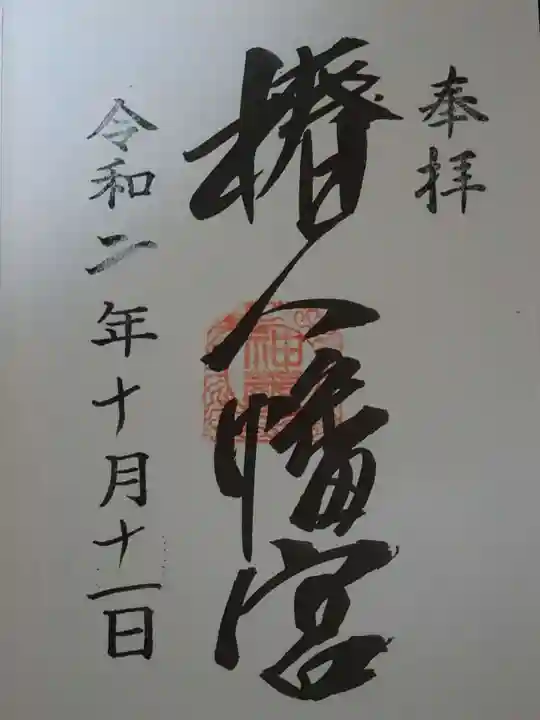 奉拝
椿八幡宮
令和二年十月十一日